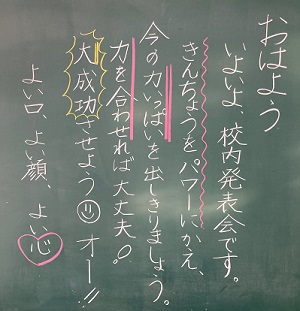 おはよう
いよいよ、校内発表会です。
きんちょうをパワーにかえ、
今の力いっぱいを出しきりましょう。
力を合わせれば大丈夫!
大成功させよう☺オー!!
よい口、よい顔、よい心